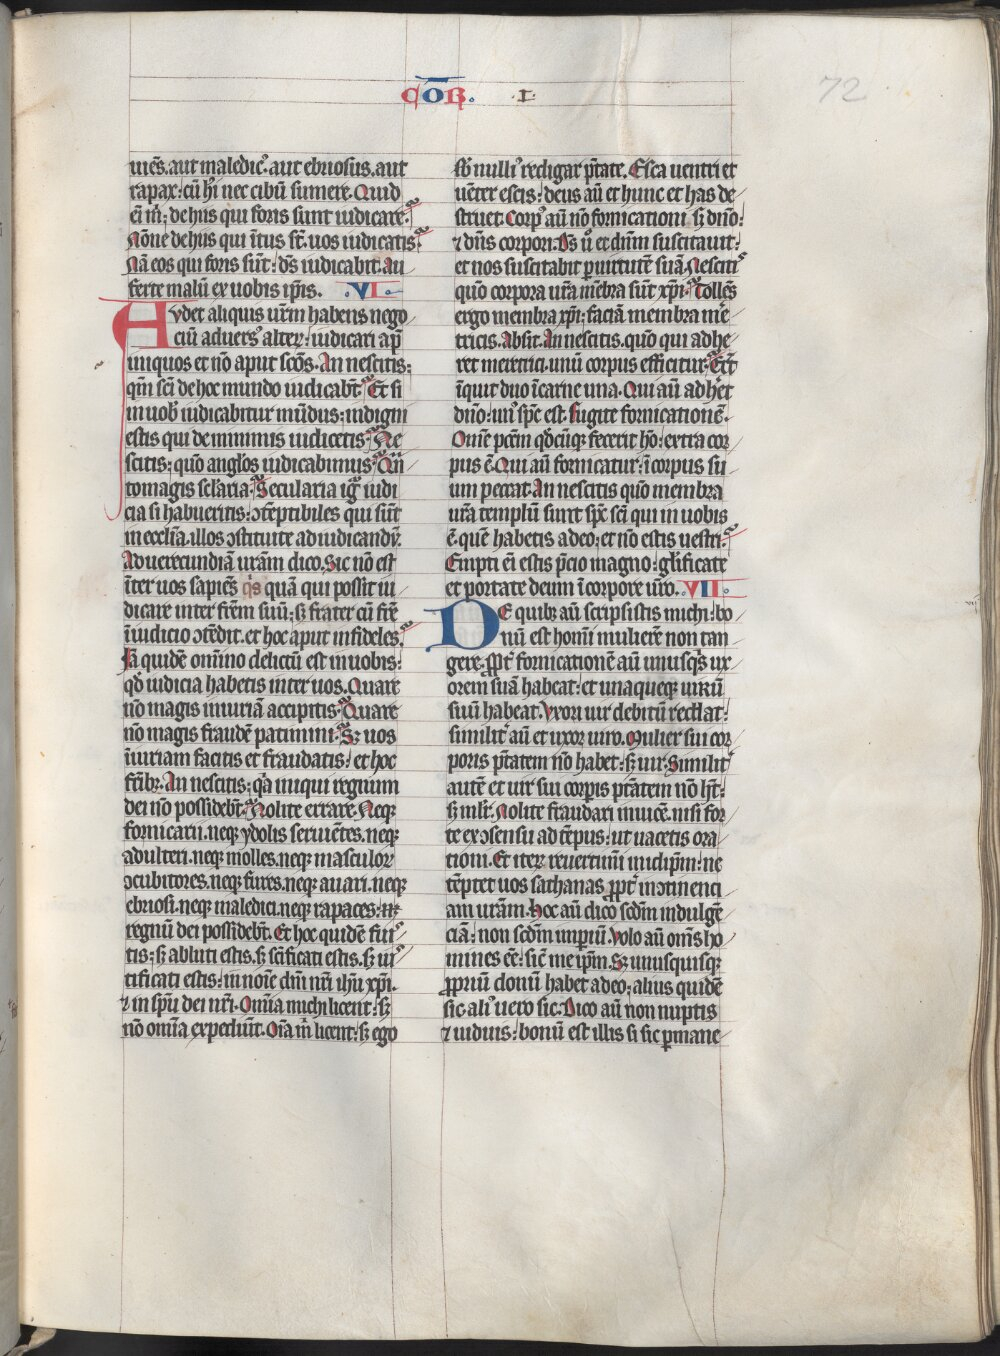 COR̅. I.
72
uiēs. aut maledic⁹. aut ebriosus. aut
rapax: cū h̾i nec cibū sumere. Quid
ei m̄; de hiis qui foris sunt iudicare.
Nōne de hiis qui ītus st̄. uos iudicatis.
Nā eos qui foris sūt: dn̄s iudicabit. Au
ferte malū ex uobis ip̄is. .VI.
Avdet aliquis ur̄m habens nego
ciū aduers⁹ alter̄: iudicari ap̄
iniquos et nō aput sc̄os. An nescitis:
qm̄ sc̄i de hoc mundo iudicab̄t. Et si
in uob̄ iudicabitur mūdus: indigni
estis qui de minimis iudicetis. Ne
scitis: quō anglōs iudicabimus. Qn̄
tomagis sclaria. Secularia iḡ iudi
cia si habueritis: ↄtēptibiles qui sūt
in ecclīa. illos ↄstituite ad iudicandꝝ.
Ad uerecundiā urām dico. Sic nō est
īter uos sapiēs q̄s quā qui possit iu
dicare inter frēm suū: s; frater cū frē
ī iudicio ↄtēdit. et hoc aput infideles.
Iā quidē omīno delictū est in uobis:
qd̄ iudicia habetis inter uos. Quare
nō magis iniuriā accipitis. Quare
nō magis fraudē patimini. Sꝫ uos
īiuriam facitis et fraudatis: et hoc
frīb;. An nescitis: q̄a iniqui regnum
dei nō possideb̄t. Nolite errare. Neqꝫ
fornicarii. neqꝫ ydolis seruiētes. neqꝫ
adulteri. neqꝫ molles. neqꝫ masculoꝝ
ↄcubitores. neqꝫ fures. neqꝫ auari. neqꝫ
ebriosi. neqꝫ maledici. neqꝫ rapaces:
regnū dei possideb̄t. Et hoc quidē fui
tis: s; abluti estis. s; sc̄ificati estis. s; iu
tificati estis: in noīe dn̄i nr̄i ih̄u xp̄i.
⁊ in sp̄u dei nr̄i. Omīa michi licent: s;
nō omīa expediūt. Oīa m̄ licent: s; ego
sb̄ nulli⁹ redigar p̄tate. Esca uentri et
uēter escis: deus aū et hunc et has de
struet. Corp⁹ aū nō fornicationi. s; dn̄o:
⁊ dn̄s corpori. Ds̄ ū et dn̄m suscitauit:
et nos suscitabit ꝑ uirtutē suā. Nesciti⁹
quō corpora ur̄a mēbra sūt xp̄i. Tollēs
ergo membra xp̄i: faciā membra me
tricis. Absit. An nescitis. quō qui adhe
ret meretrici. unū corpus efficitur. Ert̄
īquit duo ī carne una. Qui aū adhēt
dn̄o: un⁹ sp̄c est. Fugite fornicationē.
Om̄e pc̄m qd̄cūqꝫ fecerit hō: extra cor
pus ē. Qui aū fornicatur: ī corpus su
um peccat. An nescitis quō membra
ur̄a templū sunt sp̄c sc̄i qui in uobis
ē. quē habetis a deo; et nō estis uestri.
Empti ei estis p̄cio magno: gl̄ificate
et portate deum ī corpore ur̄o. .VII.
De quib; aū scripsistis michi: bo
nū est homī mulierē non tan
gere. ꝓpt̄ fornicationē aū unusqꝫs ux
orem suā habeat: et unaqueqꝫ uirū
suū habeat. Vxori uir debitū reddat:
similit̄ aū et uxor uiro. Mulier sui cor
poris p̄tatem nō habet: s; uir. Similit̄
autē et uir sui corp̄is p̄tatem nō h̄t:
s; ml̄r. Nolite fraudari inuicē. nisi for
te ex ↄsensu ad tēpus: ut uacetis ora
tioni. Et iteꝝ reuertimī in idip̄m: ne
tēptet uos sathanas ꝓpt̄ inↄtinenci
am urām. Hoc aū dico sc̄dm indulgē
ciā: non sc̄dm imꝑiū. Volo aū om̄s ho
mines eē: sic̄ me ip̄m. Sꝫ unusquisqꝫ
ꝓprium donū habet a deo; alius quidē
sic. ali⁹ uero sic. Dico aū non nuptis
⁊ uiduis: bonū est illis si sic ꝑmane